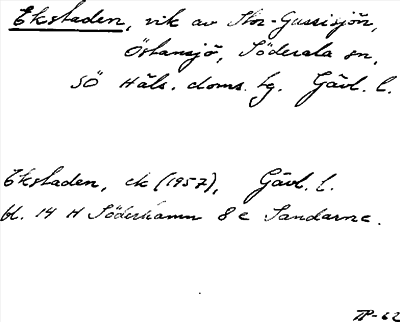 Ekstaden, vik av Stor-Gussisjön,
Östansjö, Söderala sn,
SÖ Häls. doms. tg. Gävl. l.
Ekstaden, ek (1957), Gävl. l.
bl. 14 H Söderhamn 8 e Sandarne.
TP-62